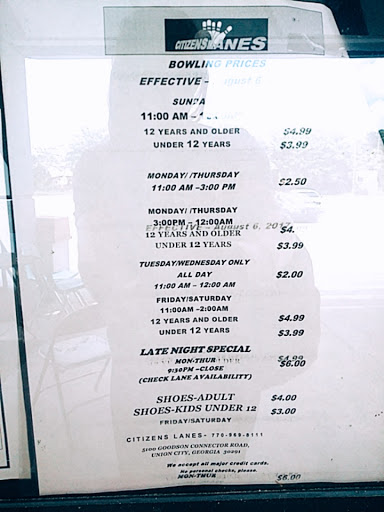 CITIZENS LANES
BOWLING PRICES
EFFECTIVE – August 6
SUNDA
11:00 AM –
12 YEARS AND OLDER $4.99
UNDER 12 YEARS $3.99
MONDAY/ /THURSDAY
11:00 AM –3:00 PM $2.50
MONDAY/ /THURSDAY
3:00PM – 12:00AM
EFFECTIVE – August 6, 2017
12 YEARS AND OLDER $4.
UNDER 12 YEARS $3.99
TUESDAY/WEDNESDAY ONLY
ALL DAY $2.00
11:00 AM – 12:00 AM
FRIDAY/SATURDAY
11:00AM –2:00AM
12 YEARS AND OLDER $4.99
UNDER 12 YEARS $3.99
LATE NIGHT SPECIAL
MON-THUR $4.99
9:30PM –CLOSE $6.00
(CHECK LANE AVAILABILITY)
SHOES-ADULT $4.00
SHOES-KIDS UNDER 12 $3.00
FRIDAY/SATURDAY
CITIZENS LANES– 770-969-8111
5100 GOODSON CONNECTOR ROAD,
UNION CITY, GEORGIA 30291
We accept all major credit cards.
No personal checks, please.
MON-THUR $6.00